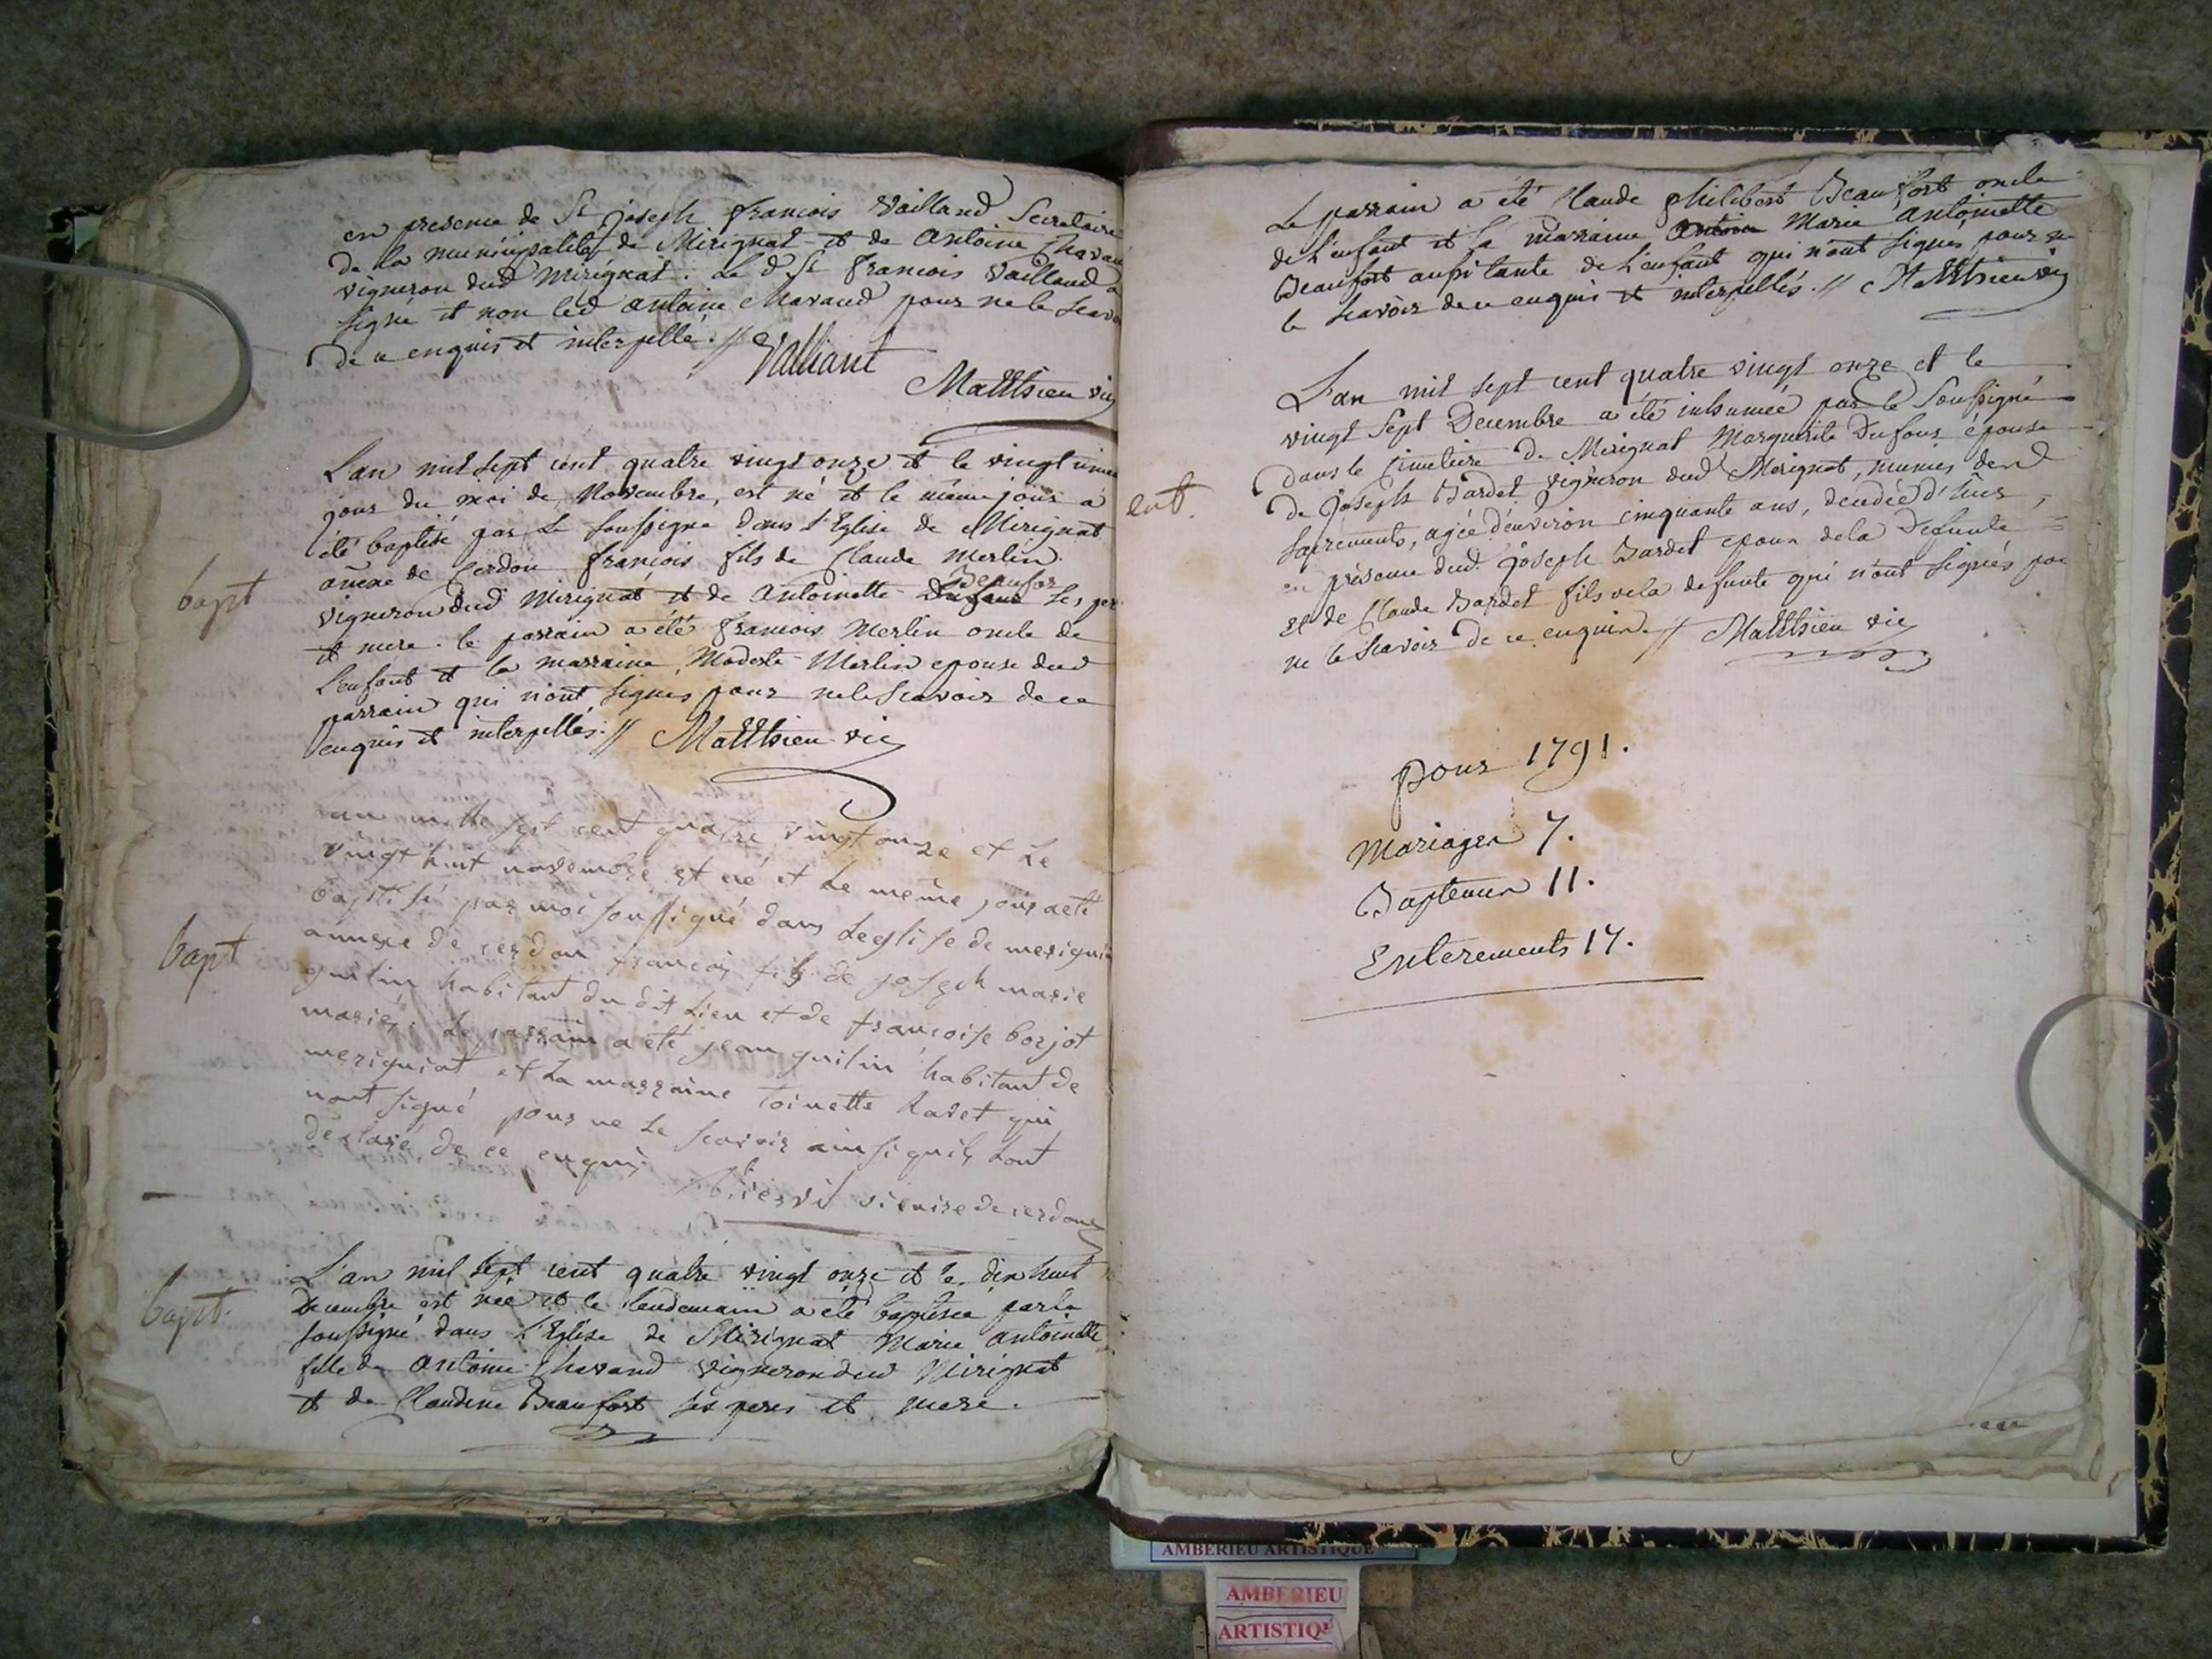 en presence de Sr joseph francois Vailland Secretaire
de la municipalité de Mirignat et de Antoine Chavan
vigneron dud Mirignat. Le d Sr francois Vailland a
signé et non led antoine Chavand pour ne le Scavo
de ce enquis et interpellé. //
Valliant
Matthieu vic
bapt
L'an mil sept cent quatre vingt onze et le vingt
jour du moi de Novembre, est né et le même jour a
été baptisé par Le soussigné dans l'Eglise de Mirignat
annexe de Cerdon françois fils de Claude Merlin
Beaufor
vigneron dud Mirignat et de Antoinette Dufour Ses per
et mere. le parrain a été francois Merlin oncle de
L'enfant et la marraine Modeste Merlin epouse dud
parrain qui n'ont signés pour ne le Scavoir de ce
enquis et interpellés. // Matthieu vic
bapt
L'an mille sept cent quatre vingt onze et Le
vingt huit novembre est né et Le même jour a eté
baptisé par moi soussigné dans Leglise de merignia
annexe de cerdon francois fils de joseph marie
guilin habitant du dit Lieu et de francoise borjot
mariés. Le parrain a eté jean guilin habitant de
merigniat et La marraine toinette Ravet qui
nont signé pour ne Le scavoir ainsi quils Lont
déclaré de ce enquis
vicaire de cerdon
bapt.
L'an mil sept cent quatre vingt onze et le dix huit
Decembre est née et le lendemain a été baptisée par le
soussigné dans L'Eglise de Mirignat Marie Antoinette
fille de Antoine Chavand vigneron dud Mirignat
et de Claudine Beaufort ses peres et mere.
Le parrain a été Claude philibert Beaufort oncle
de L'enfant et la marraine Antoin Marie Antoinette
Beaufort aussi tante de L'enfant qui n'ont signés pour ne
le Scavoir de ce enquis et interpellés. // Matthieu vic
ent.
L'an mil sept cent quatre vingt onze et le
vingt Sept Decembre a été inhumée par le Soussigné
dans le Cimetiere de Mirignat Marguerite Dufour épouse
de Joseph Bardet vigneron dud Merignat, munies de
sacrements, agée d'environ cinquante ans, décédée d'hier,
en présence dud. Joseph Bardet epoux de la Defunte
et de Claude Bardet fils de la defunte qui n'ont signés pou
ne le Scavoir de ce enquis. // Matthieu vic
pour 1791.
Mariages 7.
Baptemes 11.
Enterements 17.
AMBERIEU ARTISTIQUE
AMBERIEU
ARTISTIQ